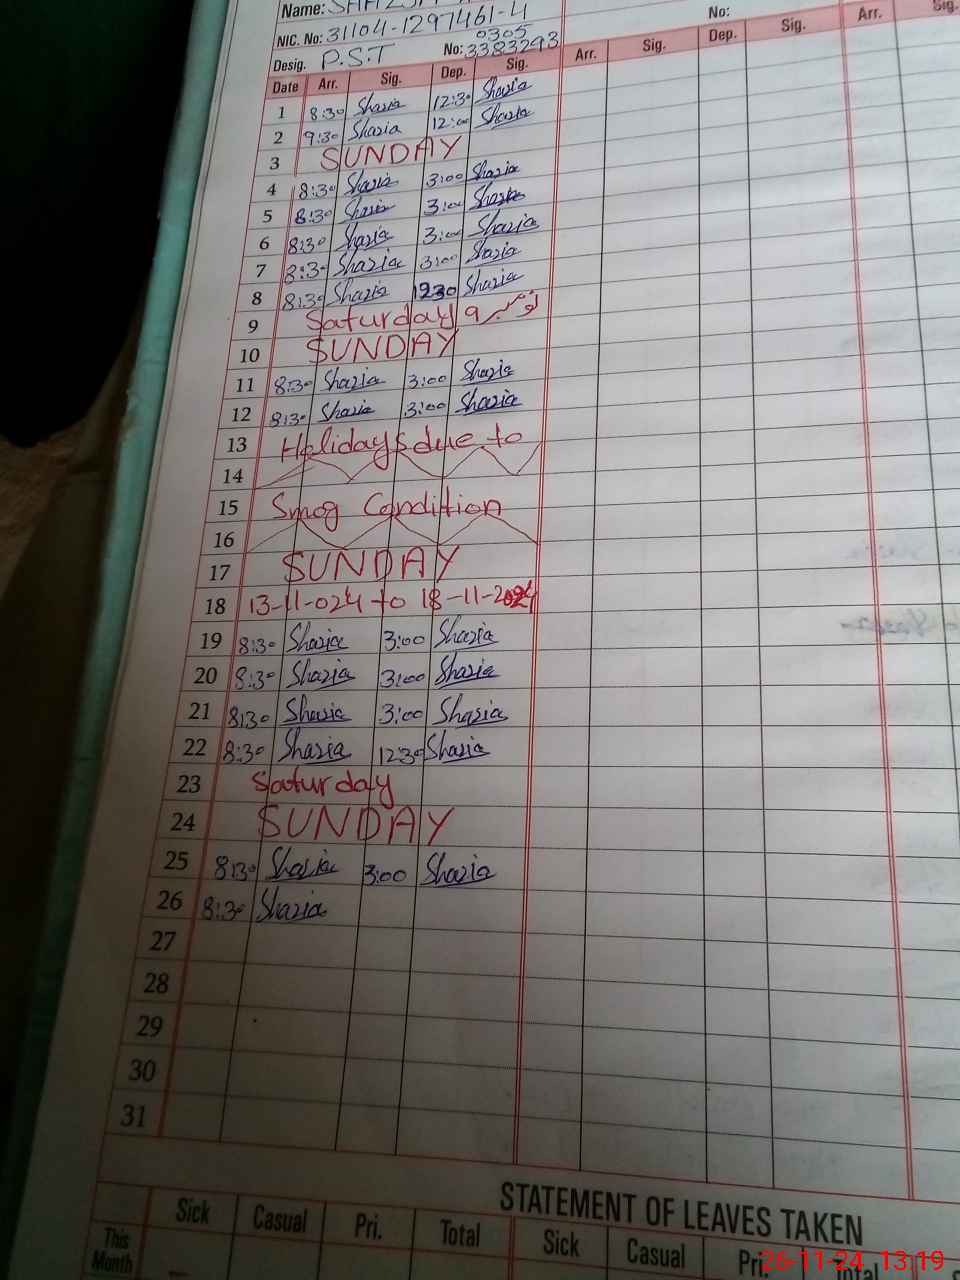 Name: SHAZIA
NIC. No: 31104-1297461-4
Desig. P.S.T No: 0305 3383293 No:
Date Arr. Sig. Dep. Sig. Arr. Sig. Dep. Sig. Arr. Sig.
1 8:30 Shazia 12:30 Shazia
2 9:30 Shazia 12:00 Shazia
3 SUNDAY
4 8:30 Shazia 3:00 Shazia
5 8:30 Shazia 3:00 Shazia
6 8:30 Shazia 3:00 Shazia
7 8:30 Shazia 3:00 Shazia
8 8:30 Shazia 1230 Shazia
9 Saturday 9 نومبر
10 SUNDAY
11 8:30 Shazia 3:00 Shazia
12 8:30 Shazia 3:00 Shazia
13 Holidays due to
14
15 Smog Condition
16
17 SUNDAY
18 13-11-024 to 18-11-2024
19 8:30 Shazia 3:00 Shazia
20 8:30 Shazia 3:00 Shazia
21 8:30 Shazia 3:00 Shazia
22 8:30 Shazia 12:30 Shazia
23 Saturday
24 SUNDAY
25 8:30 Shazia 3:00 Shazia
26 8:30 Shazia
27
28
29
30
31
STATEMENT OF LEAVES TAKEN
Sick Casual Pri. Total Sick Casual Pri. Total
This Month
26-11-24 13:19